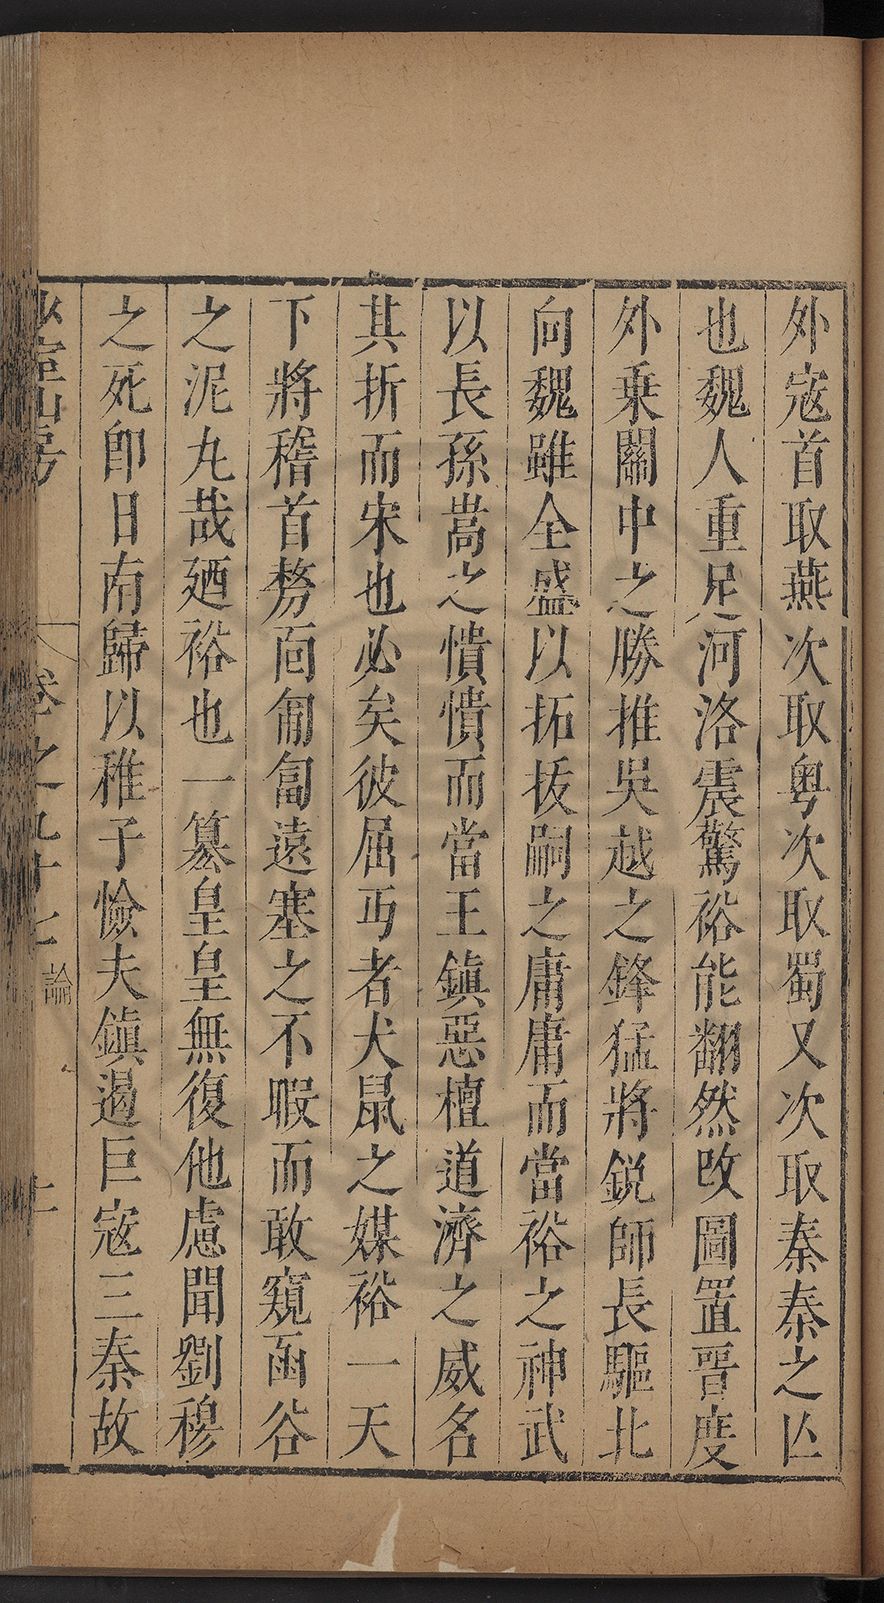 外寇首取燕次取粤次取蜀又次取秦秦之亾
也魏人重足河洛震驚裕能翻然改圖置晋度
外乗關中之勝推吳越之鋒猛將鋭師長驅北
向魏雖全盛以拓拔嗣之庸庸而當裕之神武
以長孫嵩之憒憒而當王鎮惡檀道濟之威名
其折而宋也必矣彼屈丐者犬鼠之媒裕一天
下將稽首剺面匍匐遠塞之不暇而敢窺函谷
之泥丸哉廼裕也一簒皇皇無復他慮聞劉穆
之死卽日南歸以稚子憸夫鎮遏巨寇三秦故
山房
卷之九十七
論